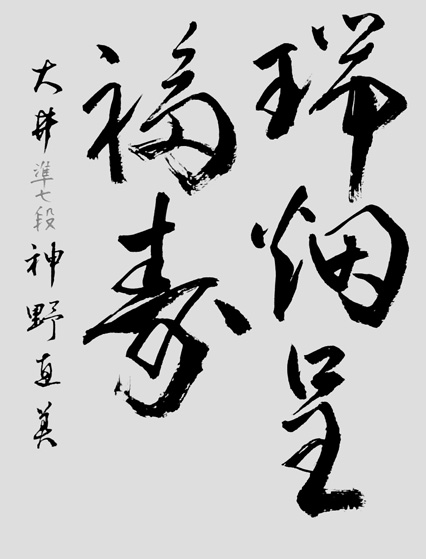 瑞烟呈
福寿
大井準七段神野直美